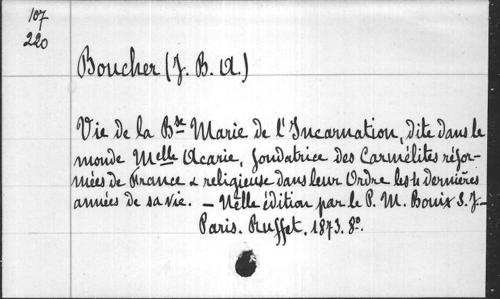 107
220
Boucher (J. B. A.)
Vie de la Bse Marie de l'Incarnation, dite dans le
monde Melle Acarie, fondatrice des Carmélites réfor-
mées de France & religieuse dans leur Ordre les 4 dernières
années de sa vie. — Nelle édition par le P. M. Bouix S. J. —
Paris. Ruffet. 1873. 8o.